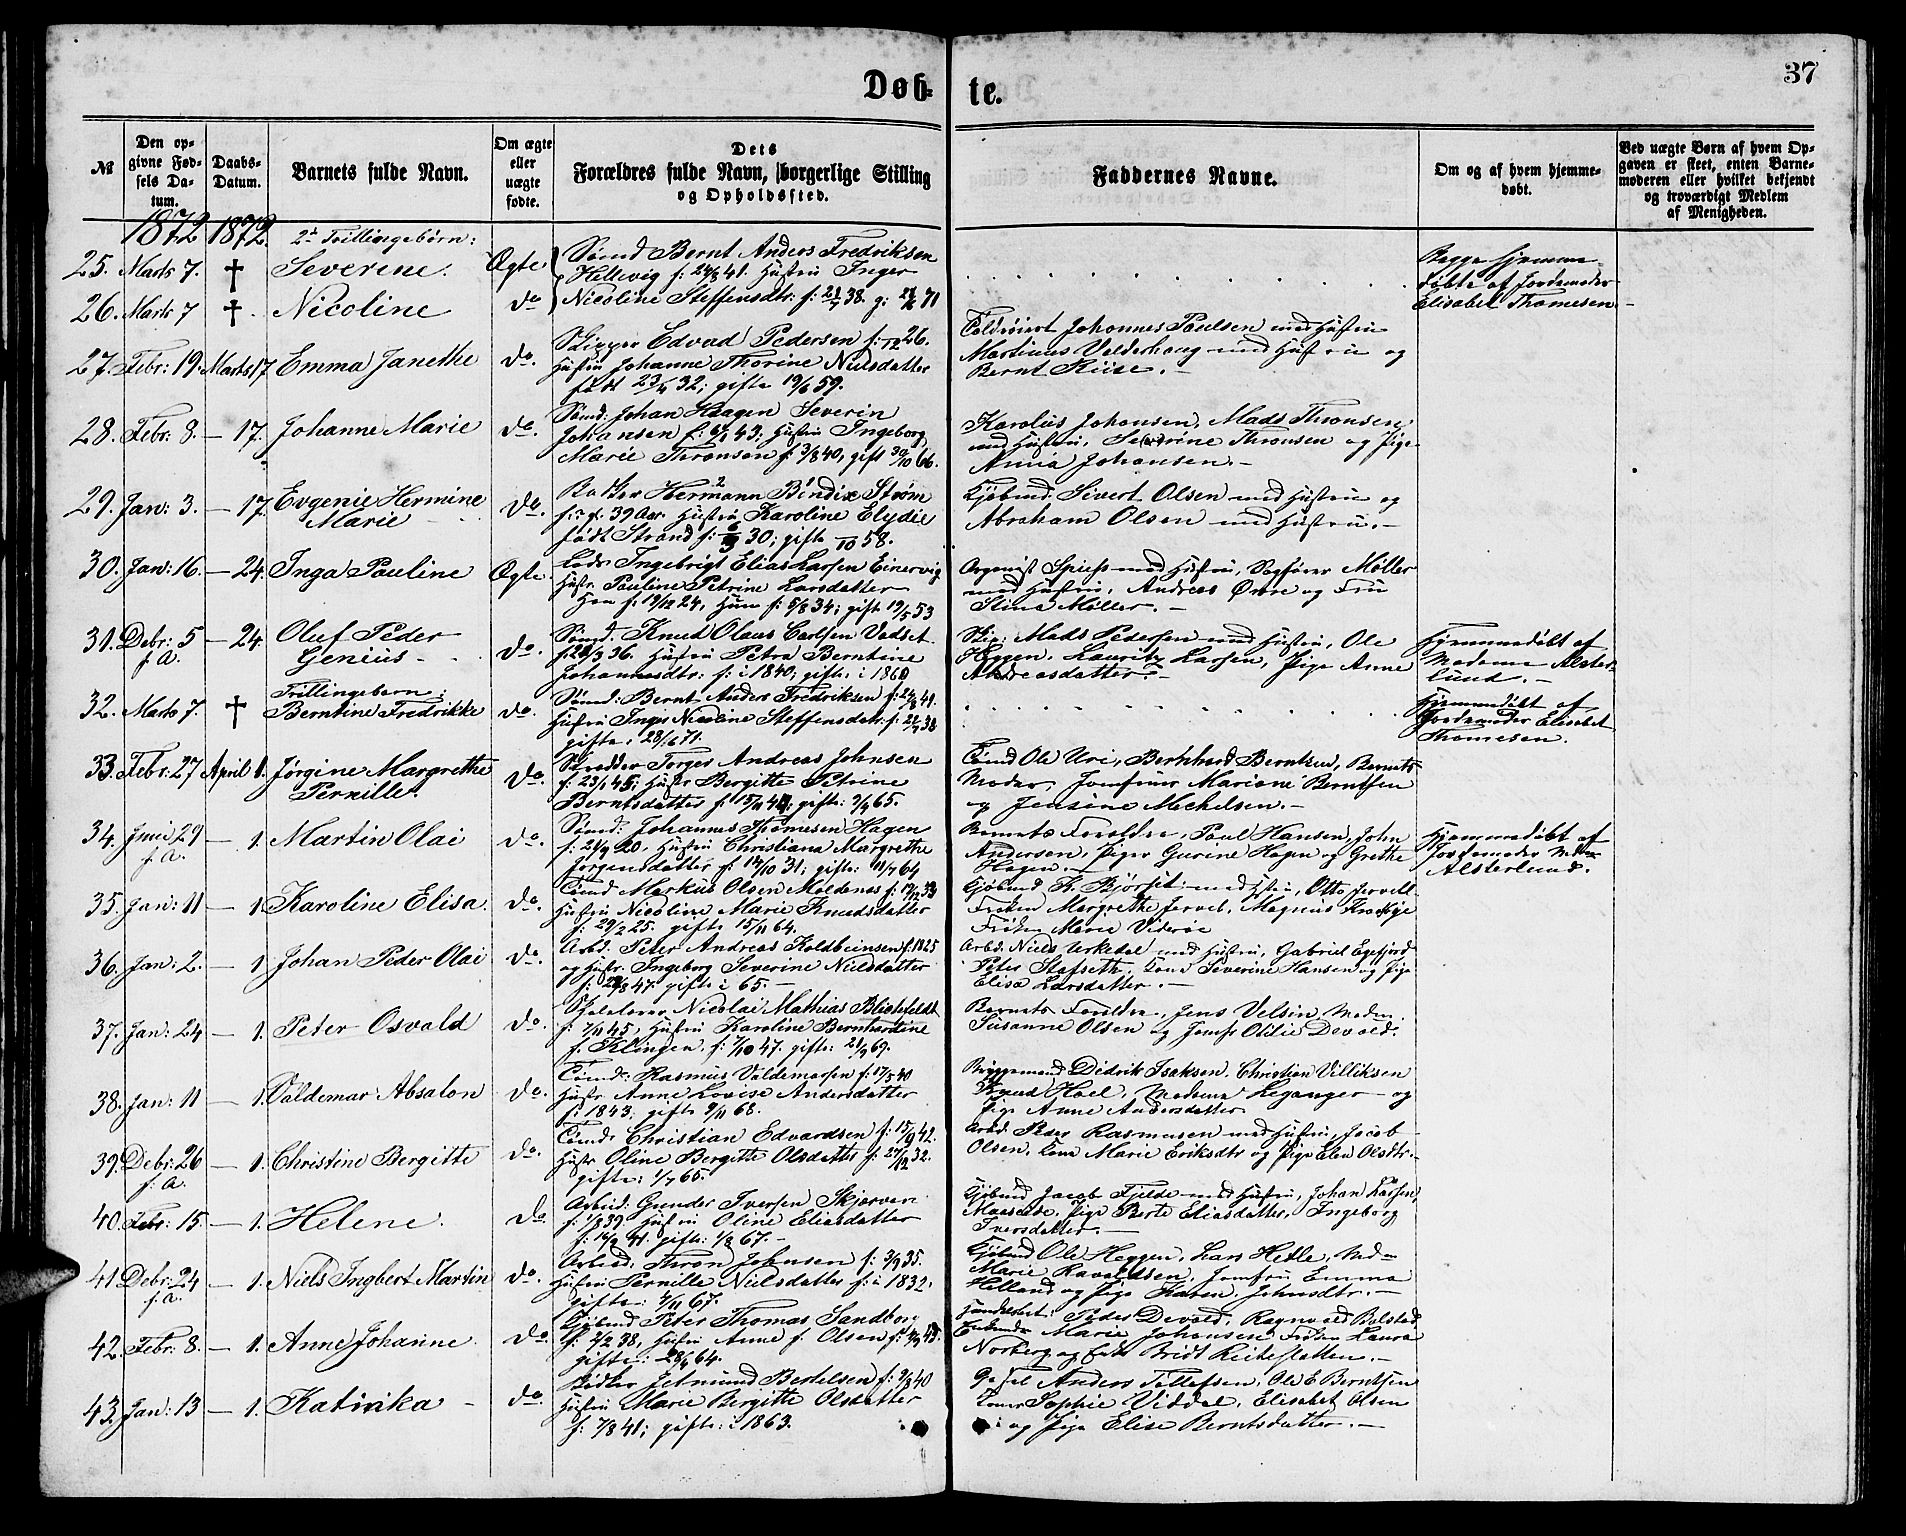 Døb-
te.
37
№
Den op-
givne Fød-
sels Da-
tum.
Daabs-
Datum.
Barnets fulde Navn.
Om ægte
eller
uægte
fødte.
Dets
Forældres fulde Navn, borgerlige Stilling
og Opholdssted.
Faddernes Navne.
Om og af hvem hjemme-
døbt.
Ved uægte Børn af hvem Op-
gaven er skeet, enten Barne-
moderen eller hvilket bekjendt
og troværdigt Medlem
af Menigheden.
1872 1872 2de Trillingebørn:
25. Marts 7. † Severine. Ægte
Sømd Bernt Anders Fredriksen
Hellevig f: 24/8 41. Hustru Inger
Begge hjemme-
døbte af Jordemoder
Elisabet Thomesen
26. Marts 7 † Nicoline do
Nicoline Steffensdtr: f: 21/7 38. g:
27. Febr: 19. Marts 17 Emma Janethe do.
Skipper Edvard Pedersen f: 26.
Hustru Johanne Thorine Nielsdatter
født 23/4 32; gifte 19/6 59.
Johannes Paulsen med Hustru
Martinus Valderhaug med Hustru og
Bernt Riise.
28. Febr: 8. — 17. Johanne Marie do.
Sømd: Johan Haagen Severin
Johansen 43; Hustru Ingeborg
Marie Thronsen f: 3/8 40, gift 30/10 66.
Karolus Johansen, Mads Thronsen
med Hustru, Severine Thronsen og Pige
Anna Johansen.
29. Jan: 3. — 17. Evgenie Hermine
Marie do.
Hermann Bendix Strøm
39 Aar. Hustru Karoline Elydie
født Strand 30; gifte /10 58.
Kjøbmd: Sivert Olsen med Hustru og
Abraham Olsen med Hustru.
30. Jan: 16. — 24. Inga Pauline Ægte.
Lods Ingebrigt Elias Larsen Einervig
Hustr: Pauline Petrine Larsdatter
Han f: 19/12 24, Hun f: 5/8 34; gifte 19/5 53
Organist Spiess med Hustru, Sagfører Møller
med Hustru, Andreas Ørre og Fru
Stina Møller.
31. Debr: 5
f. A. — 24. Oluf Peder
Genius do.
Sømd: Knud Olaus Carlsen Vadset
36. Hustru Petra Berntine
Johannesdtr: f: i 1840; gifte: i 1860
Skip: Mads Pedersen med Hustru, Ole
Heggen, Lauritz Larsen, Pige Anne
Andreasdatter.
Hjemmedøbt af
Madame Alster-
lund.
32. Marts 7. † Trillingebarn:
Berntine Fredrikke do.
Sømd: Bernt Anders Fredriksen f: 24/8 41.
Hustru Inger Nicoline Steffensdatr: f: 21/7 38
gifte: 28/1 71.
Hjemmedøbt af
Jordemoder Elisabet
Thomesen.
33. Febr: 27 April 1. Jørgine Margrethe
Pernille. do.
Skrædder Torger Andreas Johnsen
f: 23/1 45; Hustr: Bergitte Petrine
Berntsdatter gifte: 9/4 65.
Tømd Ole Uri, Bernhard Berntsen, Barnets
Moder, Jomfruer Mariane Berntsen
og Jensine Mechelsen.
34. Juni 29
f. A. — 1. Martin Olai do.
Sømd: Johannes Thomesen Hagen
f: 21/9 20, Hustru Christiana Margrethe
Jørgensdatter f: 14/10 31; gifte: 11/7 64
Barnets Forældre, Paul Hansen, John
Andersen, Piger Gurine Hagen og Grethe
Hagen.
Hjemmedøbt af
Jordemoder Mad.
Alsterlund.
35. Jan: 11 — 1. Karoline Elisa. do.
Tømd Markus Olsen Moldenæs
Hustru Nicoline Marie Knudsdatter
f: 29/2 25. gifte 15/11 64.
Kjøbmd Th. Bjørset med Hustru, Otto Jervell
Frøken Margrethe Jervel, Magnus
Frøken Marie Viderøe
36. Jan: 2. — 1. Johan Peder Olai do.
Arbd: Peter Andreas Koldbeinsen f: 1825
og Hustr: Ingeborg Severine Nielsdatter
47. gifte i 65.
Arbd: Niels Urkedal med Hustru, Gabriel
Peter Stafseth, Kone Severine Hansen og Pige
Elisa Larsdatter.
37. Jan: 24 — 1. Peter Osvald do.
Skolelærer Nicolai Mathias Blichfeldt
f: 7/11 45, Hustru Karoline Bernhardine
f. Klingen, f: 7/10 47. gifte: 21/9 69.
Barnets Forældre, Jens Velsin, Madm.
Susanne Olsen og Jomfr Otilie Devold.
38. Jan: 11 — 1. Valdemar Absalon do.
Tømd: Rasmus Valdemarsen f: 17/5 40
Hustr: Anne Lovise Andersdatter
f: 1843; gifte 9/11 68.
Bryggemand Didrik Isaksen, Christian Villiksen
Knud Hoel, Madame Leganger og
Pige Anne Andersdatter
39. Debr: 26
f: A. — 1. Christine Bergitte do.
Tømd: Christian Edvardsen f: 15/9 42.
Hustr: Oline Bergitte Olsdatter f: 27/12 32.
gifte: 1/7 65.
Arbd: Peder Rasmusen med Hustru, Jacob
Olsen, Kone Marie Eriksdtr og Pige Elen Olsdtr.
40. Febr: 15. — 1. Helene. do.
Arbeid: Gunder Iversen Skjerven
f: 1/8 39 Hustru Oline Eliasdatter
41. gifte: 1/8 67.
Kjøbmd Jacob Fjelde med Hustru, Johan Larsen,
Maaseide, Pige Berte Eliasdatter, Ingeborg
Iversdatter.
41. Debr: 24
f. A. — 1. Niels Ingbert Martin do.
Arbeid. Thron Johnsen f: 3/9 35.
Hustru Pernille Nielsdatter f: i 1832.
gifte: 4/11 67.
Kjøbmd Ole Heggen, Lars Hetle, Madm
Marie Havaldsen, Jomfru Emma
Helland og Pige Karen Johnsdtr.
42. Febr: 8. — 1. Anne Johanne. do.
Kjøbmd Peter Thomas Sandborg
f: 2/2 38, Hustru Anne f. Olsen
gifte: 28/9 64.
Handelsbet: Peder Devold, Ragnvald Bolstad,
Marie Johansen Frøken Laura
Norberg og Bridt
43. Jan: 13 — 1. Katinka do.
Bødker Jetmund Bertelsen f: 9/3 40
Hustru Marie Bergitte Olsdatter
f: 7/8 41; gifte: i 1863.
Anders Tollefsen, Ole E Berntsen
Kone Sophie Viddal, Elisabet Olsen
og Pige Elise Berntsdatter.